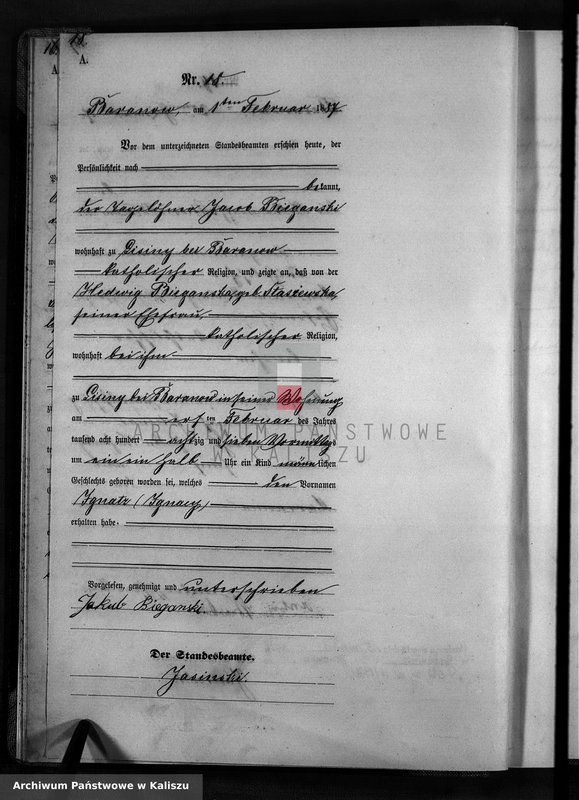 18.
A.
Nr. 18.
Baranow, am 1ten Februar 1887
Vor dem unterzeichneten Standesbeamten erschien heute, der
Persönlichkeit nach
bekannt,
der Tagelöhner Jacob Bieganski
wohnhaft zu Lisiny bei Baranow
katholischer Religion, und zeigte an, daß von der
Hedwig Bieganska, geb. Staszewska,
seiner Ehefrau,
katholischer Religion,
wohnhaft bei ihm
zu Lisiny bei Baranow in seiner Wohnung
am ersten Februar des Jahres
tausend acht hundert achtzig und sieben Vormittags
um ein ein halb Uhr ein Kind männlichen
Geschlechts geboren worden sei, welches den Vornamen
Ignatz (Ignacy)
erhalten habe.
Vorgelesen, genehmigt und unterschrieben
Jakub Bieganski
Der Standesbeamte.
Jasinski.
ARCHIWUM PAŃSTWOWE
W KALISZU
Archiwum Państwowe w Kaliszu